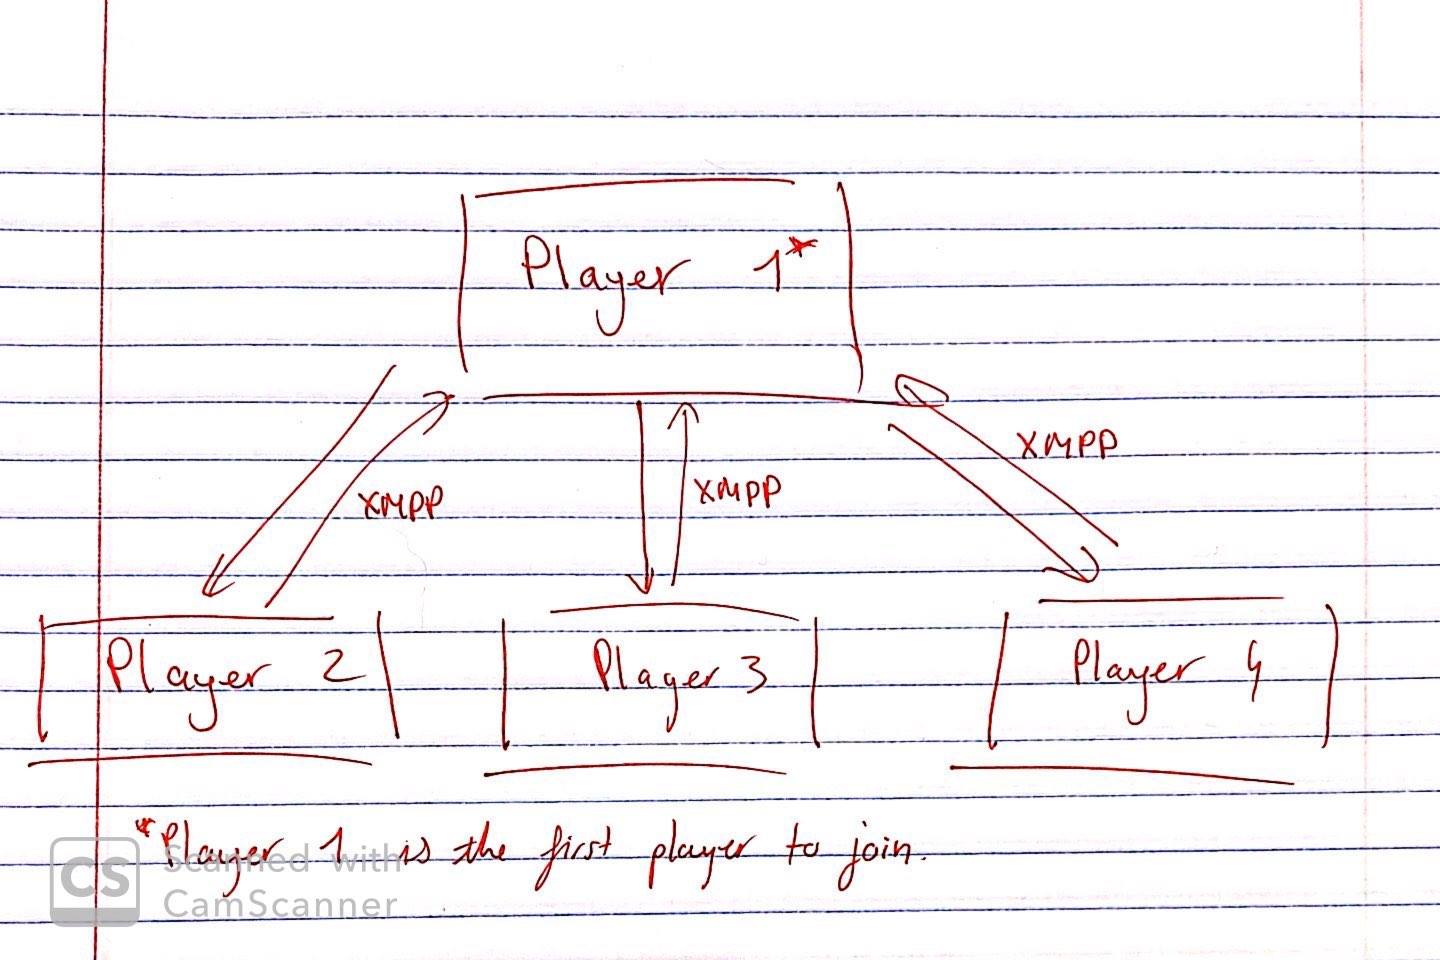 Player 1*
XMPP
XMPP
XMPP
Player 2
Player 3
Player 4
*Player 1 is the first player to join.
CS Scanned with
CamScanner